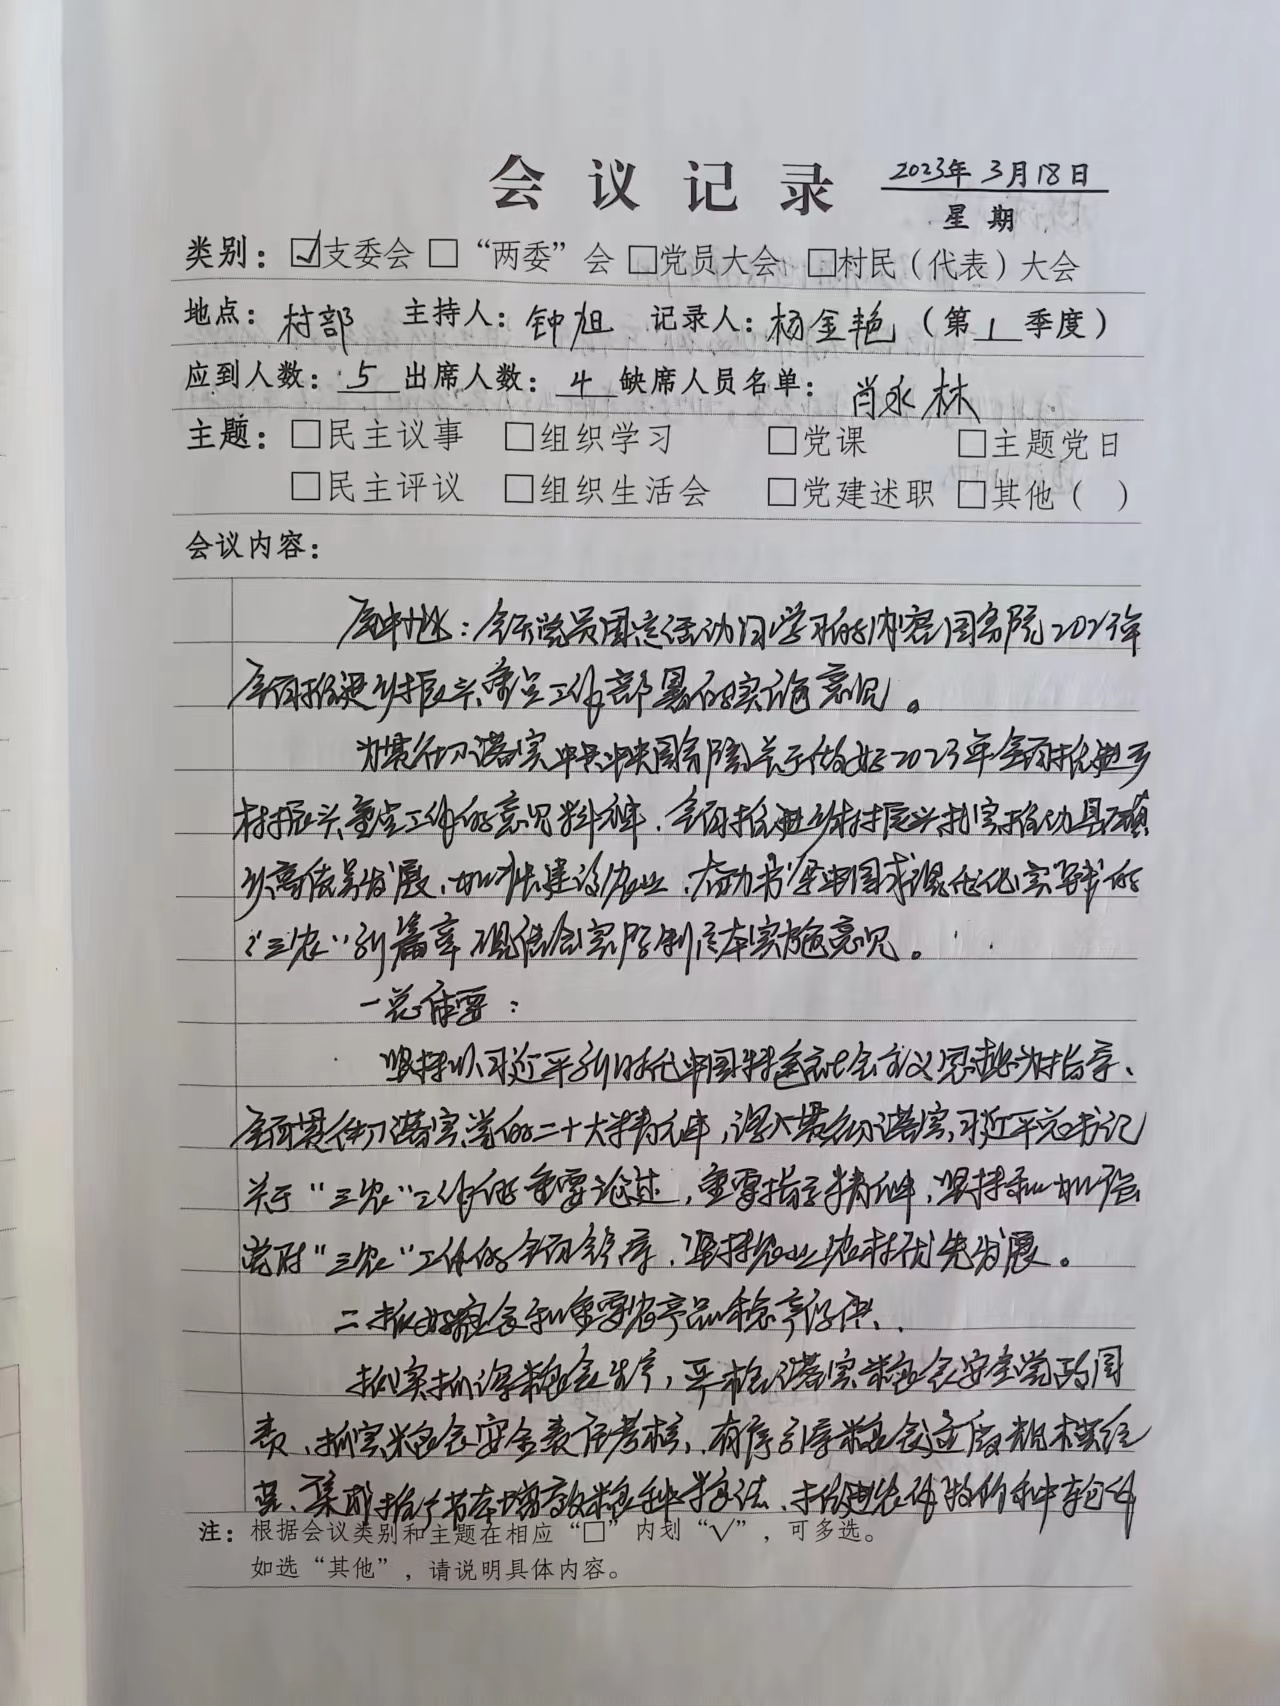 会议记录 2023年3月18日
星期
类别：☑支委会 □“两委”会 □党员大会 □村民（代表）大会
地点：村部 主持人：钟旭 记录人：杨金艳（第1季度）
应到人数：5 出席人数：4 缺席人员名单：肖永林
主题：□民主议事 □组织学习 □党课 □主题党日
□民主评议 □组织生活会 □党建述职 □其他（ ）
会议内容：
：今天党员固定活动日学习的内容国务院2023年
全面推进乡村振兴重点工作部署的实施意见。
为贯彻落实中共中央国务院关于做好2023年全面推进乡
村振兴重点工作的意见精神、全面推进乡村振兴扎实推动县域
高质量发展、加快建设农业、奋力书写中国式现代化实践的
“三农”新篇章 现结合实际制定本实施意见。
一总体要：
坚持以习近平新时代中国特色社会主义思想为指导、
全面贯彻落实党的二十大精神，深入贯彻落实习近平总书记
关于“三农”工作的重要论述，重要指示精神，坚持和加强
党对“三农”工作的全面领导、坚持农业农村优先发展。
二抓好粮食和重要农产品稳产保供、
抓实抓深粮食生产，严格落实粮食安全党政同
责、抓实粮食安全责任考核、有序引导粮食适度规模经
营、集成推广节本增效粮食种
注：根据会议类别和主题在相应“□”内划“√”，可多选。
如选“其他”，请说明具体内容。